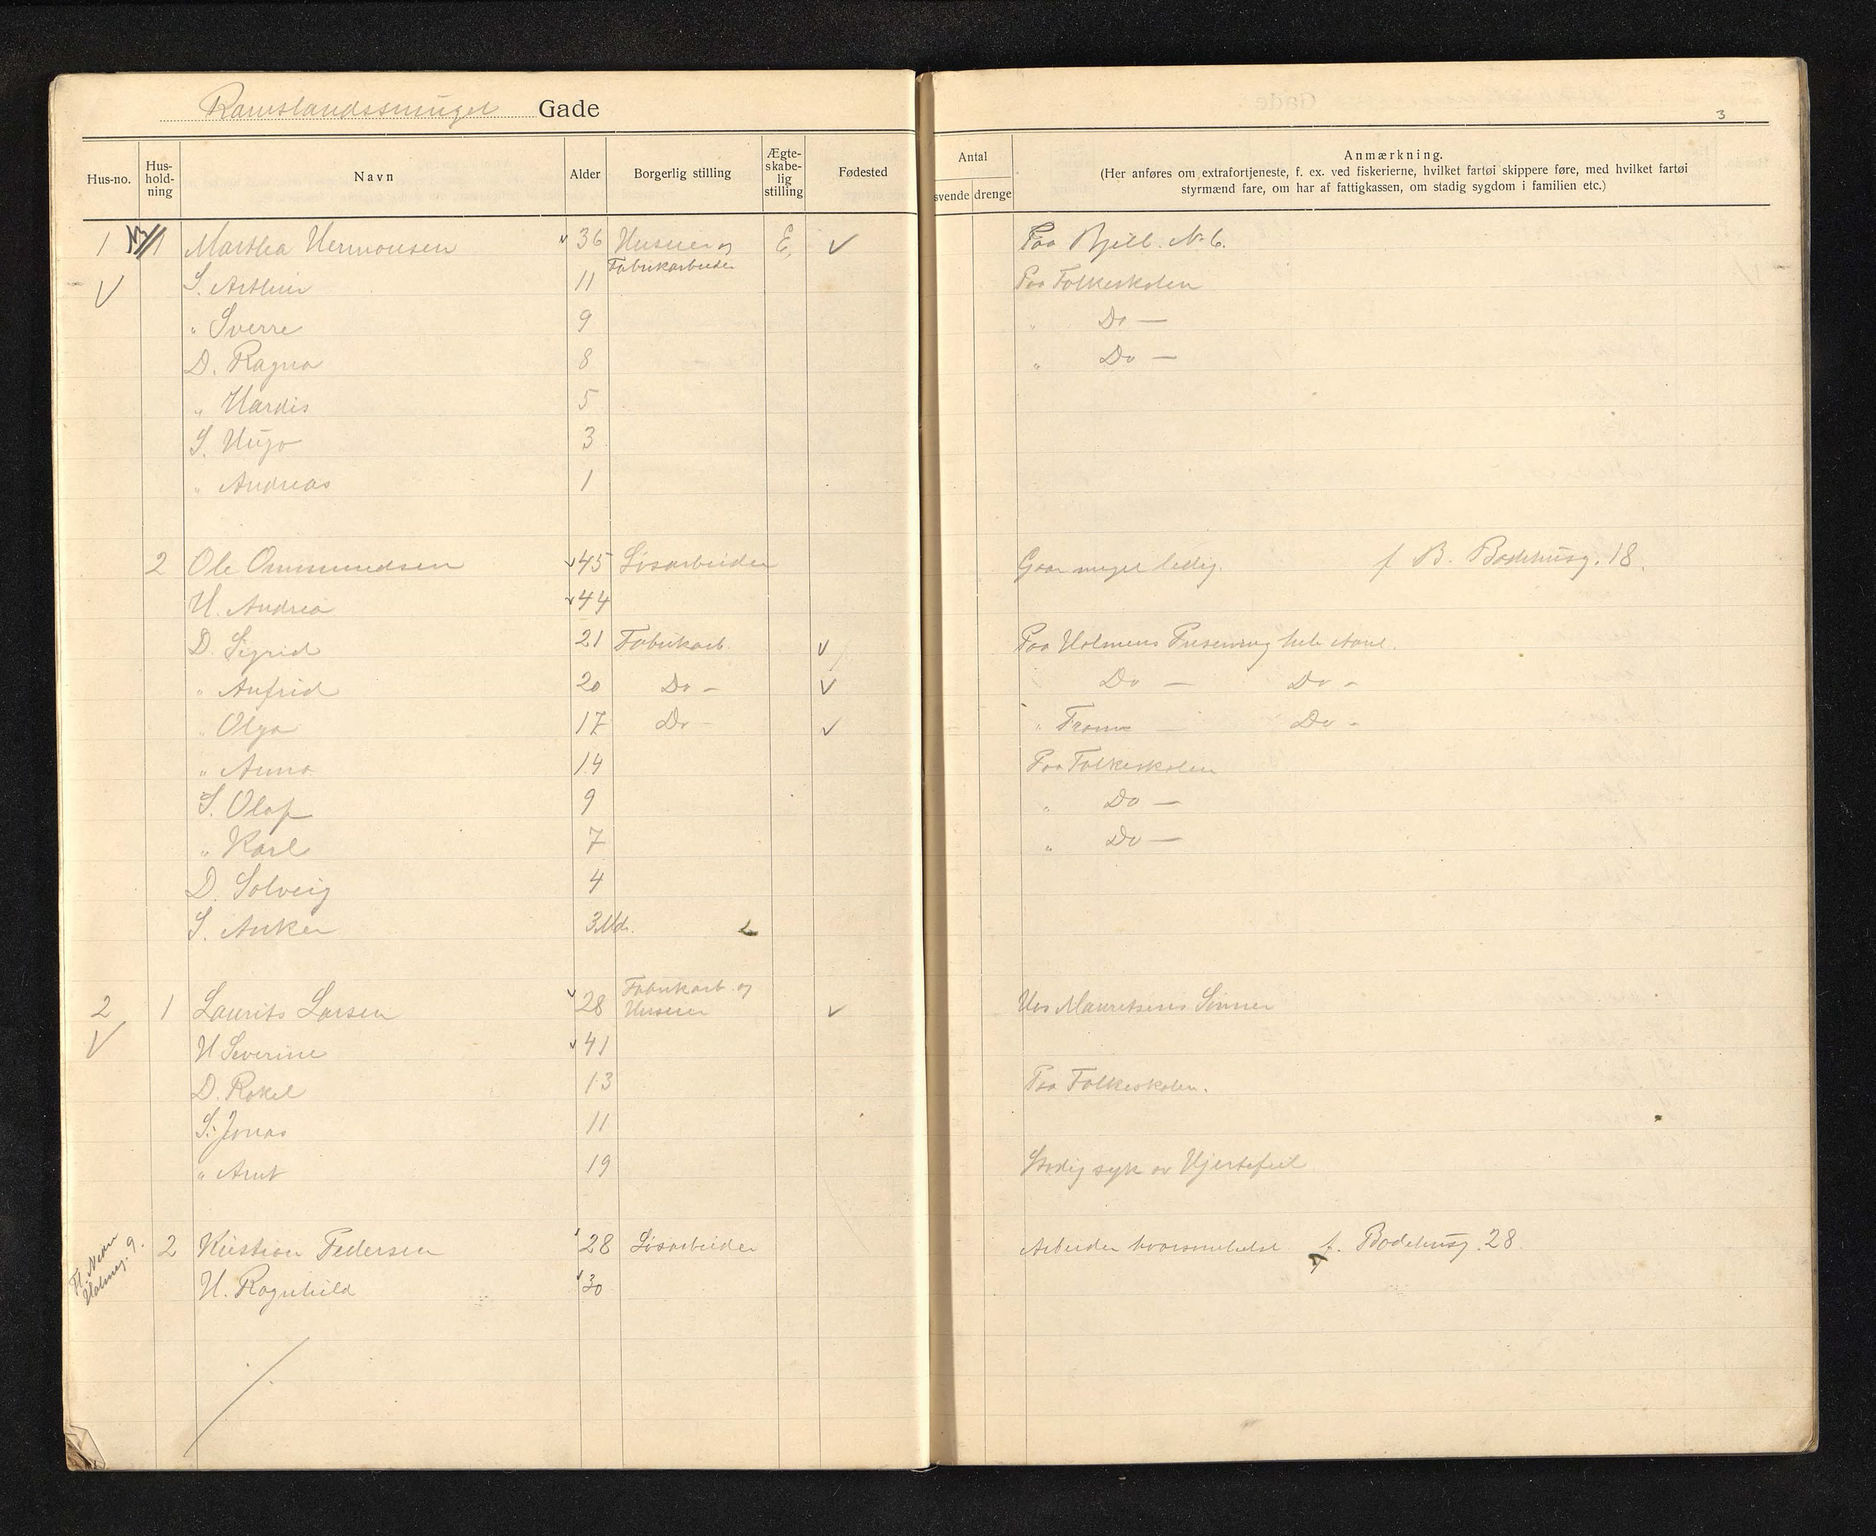 Ramslandssmuget Gade
3
Hus-no. Hus-hold-ning Navn Alder Borgerlig stilling Ægte-skabe-lig stilling Fødested
Antal svende drenge
Anmærkning.
(Her anføres om extrafortjeneste, f. ex. ved fiskerierne, hvilket fartøi skippere føre, med hvilket fartøi
styrmænd fare, om har af fattigkassen, om stadig sygdom i familien etc.)
1 1 Martha Hermansen v 36 Huseier og Fabrikarbeider E. v Paa Bjell. No 6.
v S. Arthur 11 Paa Folkeskolen
" Sverre 9 " Do —
D. Ragna 8 " Do —
" Hardis 5
S. Hugo 3
" Andreas 1
2 Ole Ommundsen v 45 Løsarbeider Gaar meget ledig. f B. Badehusg. 18.
H. Andrea v 44
D. Sigrid 21 Fabrikarb. v Paa Holmens Preserving hele Aaret.
" Anfrid 20 Do — v Do — Do —
" Olga 17 Do — v " Fram — Do —
" Anna 14 Paa Folkeskolen
S. Olaf 9 " Do —
" Karl 7 " Do —
D. Solveig 4
S. Anker 3 Md.
2 1 Laurits Larsen v 28 Fabrikarb. og Huseier v Hos Mauritzens Sønner
v H Severine v 41
D. Rakel 13 Paa Folkeskolen.
S. Jonas 11
" Arnt 19 Stadig syk av Hjertefeil
Fl. Nedre Holmeg. 9. 2 Kristian Pedersen 28 Løsarbeider Arbeider hvorsomhelst f. Badehusg. 28.
H. Ragnhild 30